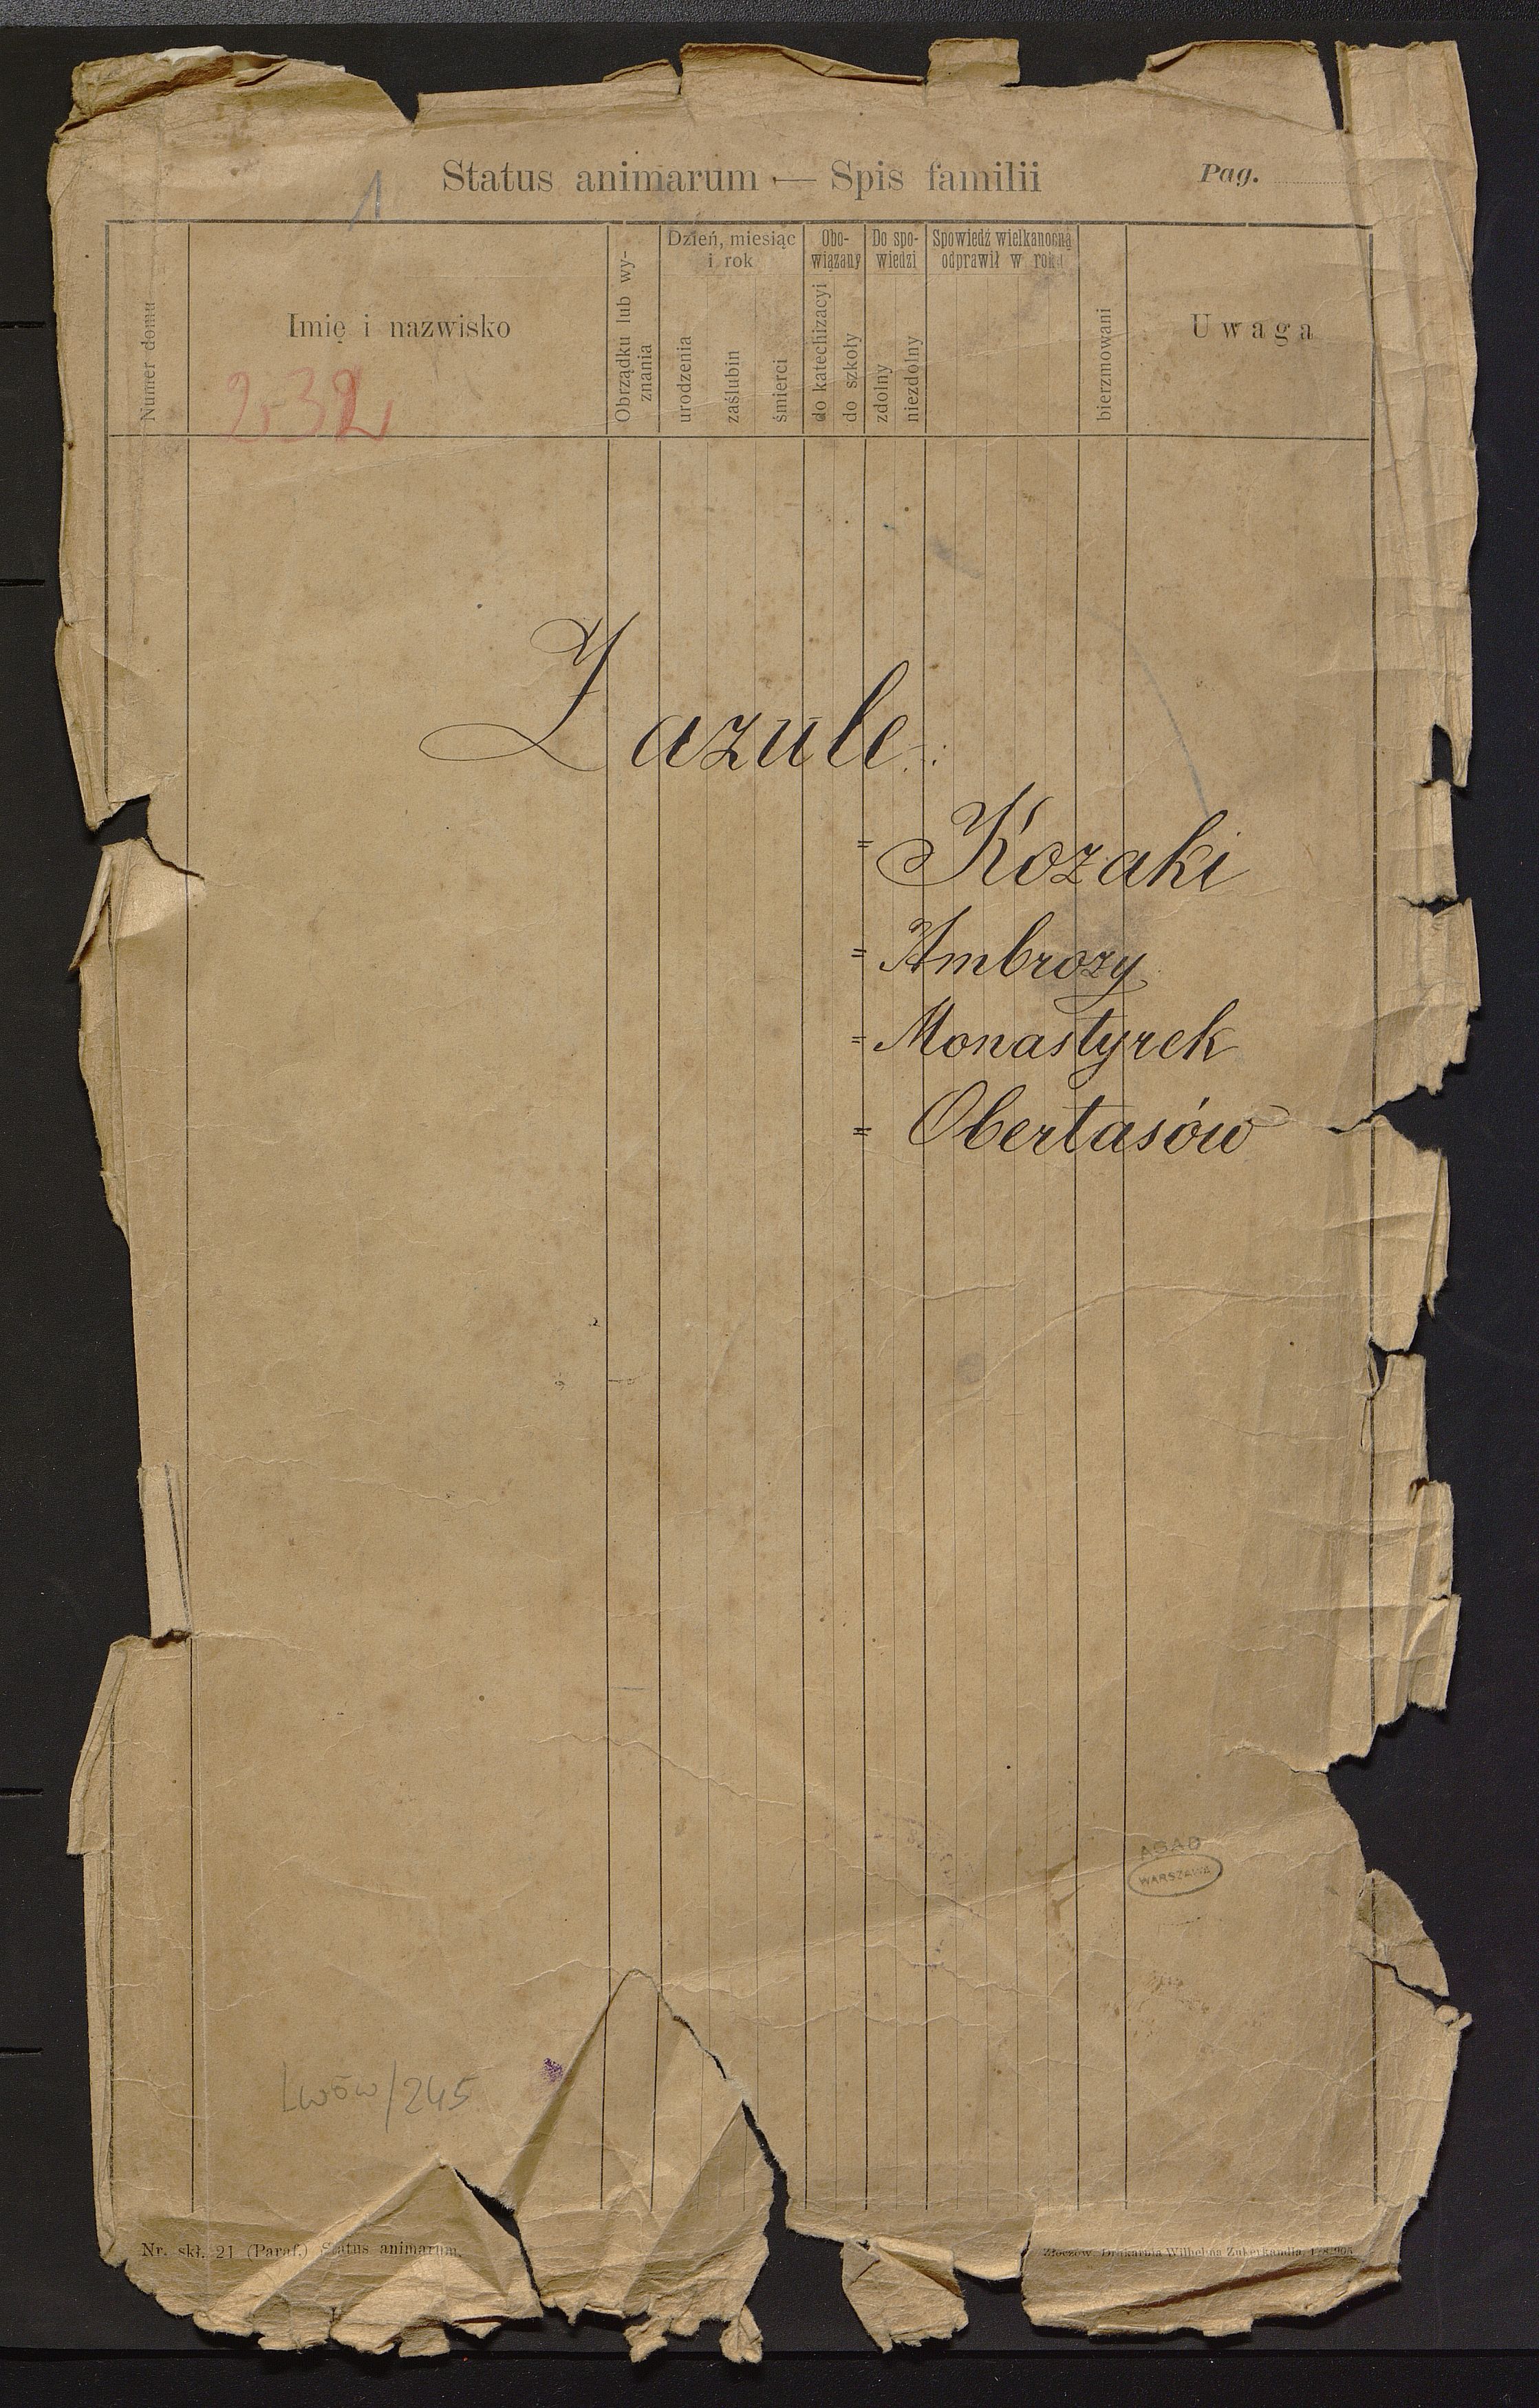 Status animarum — Spis familii
Pag.
1
Numer domu
Imię i nazwisko
232
Obrządku lub wy-
znania
Dzień, miesiąc
i rok
urodzenia
zaślubin
śmierci
Obo-
wiązany
do katechizacyi
do szkoły
Do spo-
wiedzi
zdolny
niezdolny
Spowiedź wielkanocną
odprawił w roku
bierzmowani
Uwaga
Zazule:
= Kozaki
= Ambrozy
= Monastyrek
= Obertasów
AGAD
WARSZAWA
Lwów/245
Nr. skł. 21 (Paraf.) Status animarum.
Złoczów. Drukarnia Wilhelma Zukerkandla,